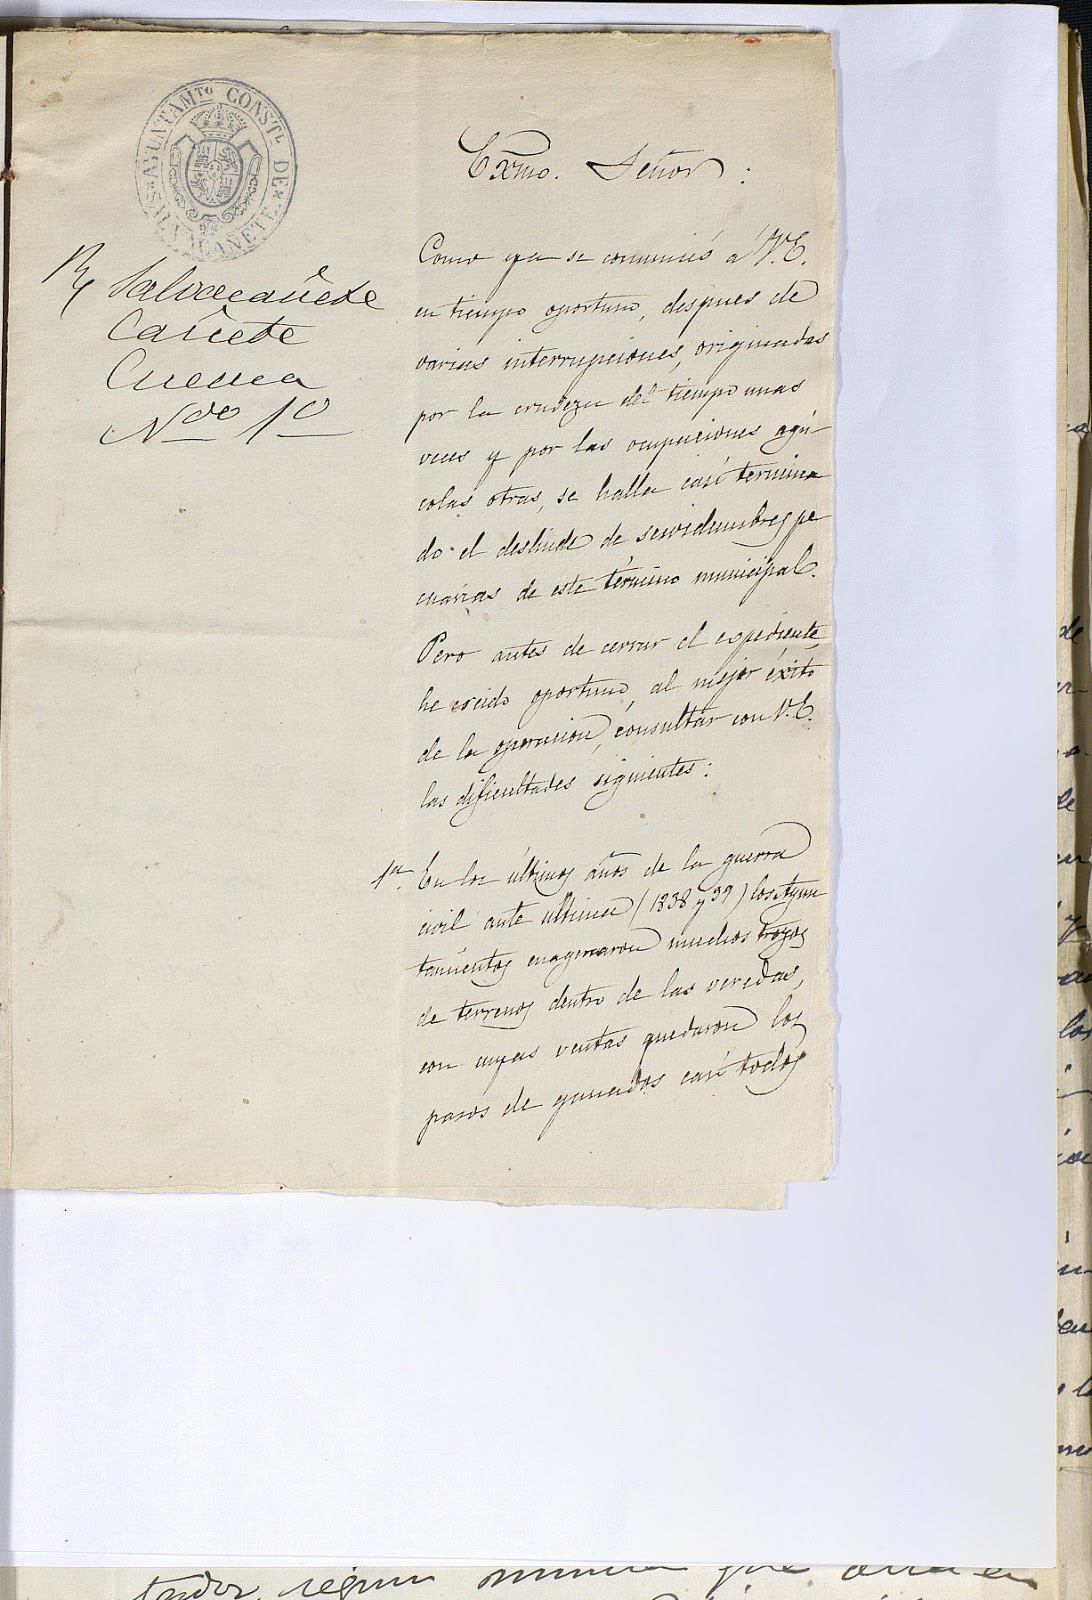 AYUNTAMto CONSTL DE SALVACAÑETE
Salvacañete
Cañete
Cuenca
Ndo 1º
Exmo. Señor:
Como ya se comunicó á V.E.
en tiempo oportuno, despues de
varias interrupciones, originadas
por la crudeza del tiempo unas
veces y por las ocupaciones agrí
colas otras, se halla casi termina
do el deslinde de servidumbres pe
cuarias de este término municipal.
Pero antes de cerrar el expediente,
he creido oportuno, al mejor éxito
de la operacion, consultar con V.E.
las dificultades siguientes:
1ª. En los últimos años de la guerra
civil ante última (1838 y 39) los Ayun
tamientos enagenaron muchos trozos
de terrenos dentro de las veredas,
con cuyas ventas quedaron los
pasos de ganados casi todos